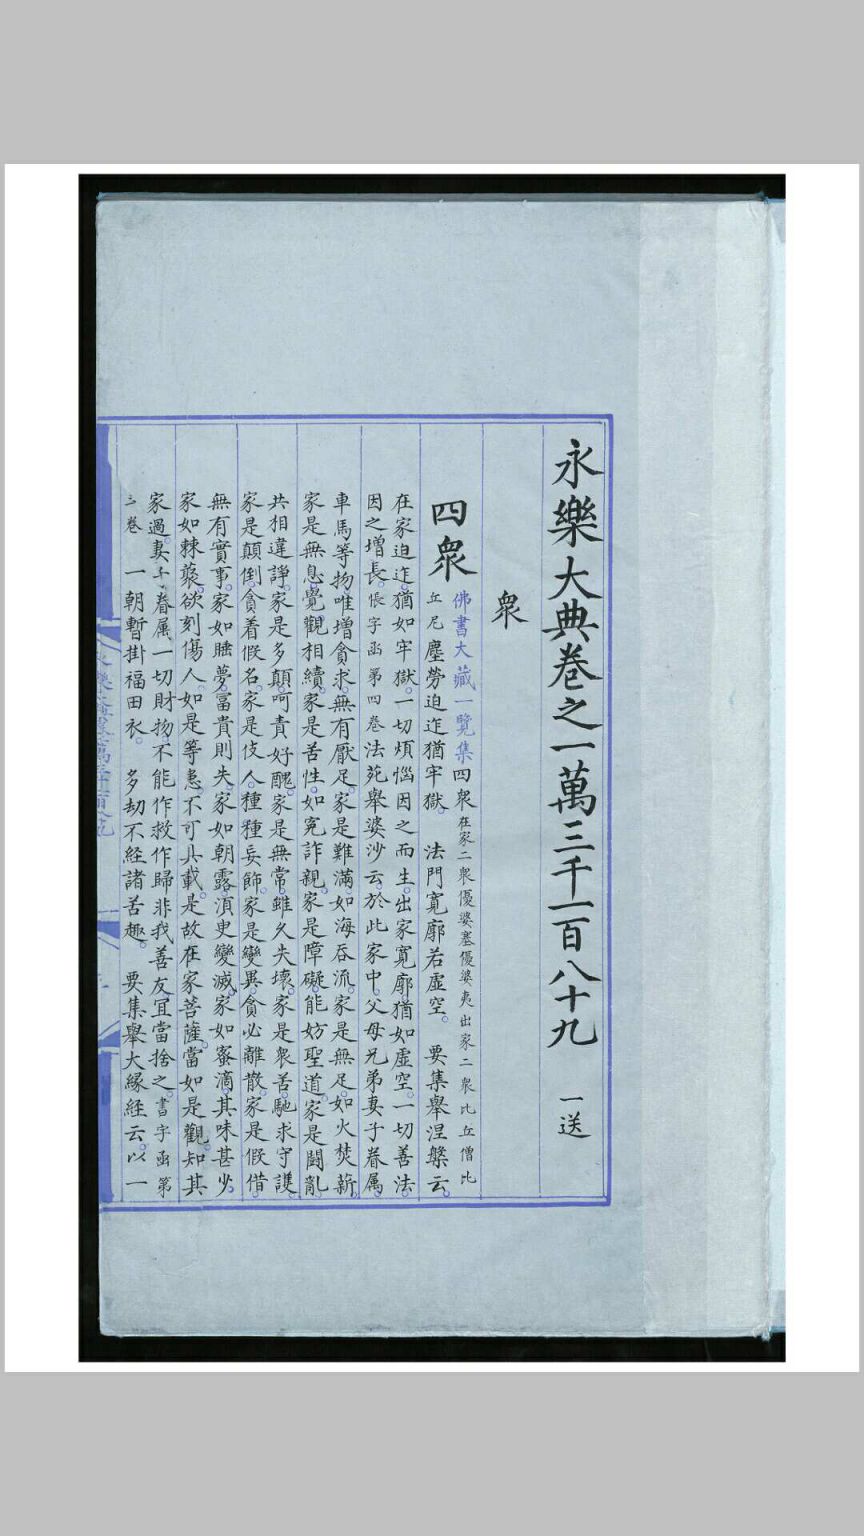 永樂大典卷之一萬三千一百八十九 一送
衆
四衆 佛書大藏一覽集四衆在家二衆優婆塞優婆夷出家二衆比丘僧比
丘尼塵勞迫迮猶牢獄。 法門寬廓若虛空。 要集舉涅槃云。
在家迫迮猶如牢獄。一切煩惱因之而生。出家寬廓猶如虛空。一切善法
因之增長。悵字函第四卷法苑舉婆沙云。於此家中。父母兄弟妻子眷属。
車馬等物。唯增貪求。無有厭足。家是難滿。如海吞流。家是無足。如火焚薪。
家是無息。覺觀相續。家是苦性。如寃詐親。家是障礙。能妨聖道。家是鬪亂
共相違諍。家是多顛。呵責好醜。家是無常。雖久失壞。家是衆苦。馳求守護。
家是顛倒。貪着假名。家是伎人。種種妄飾。家是變異。貪必離散。家是假借。
無有實事。家如睡夢。富貴則失。家如朝露。湏臾變滅。家如蜜滴。其味甚少。
家如棘藂。欲刻傷人。如是等患。不可具載。是故在家菩薩。當如是觀。知其
家過。妻子眷属一切財物。不能作救作歸非我善友冝當捨之。書字函第
三卷 一朝暫掛福田衣。 多劫不經諸苦趣。 要集舉大縁経云。以一